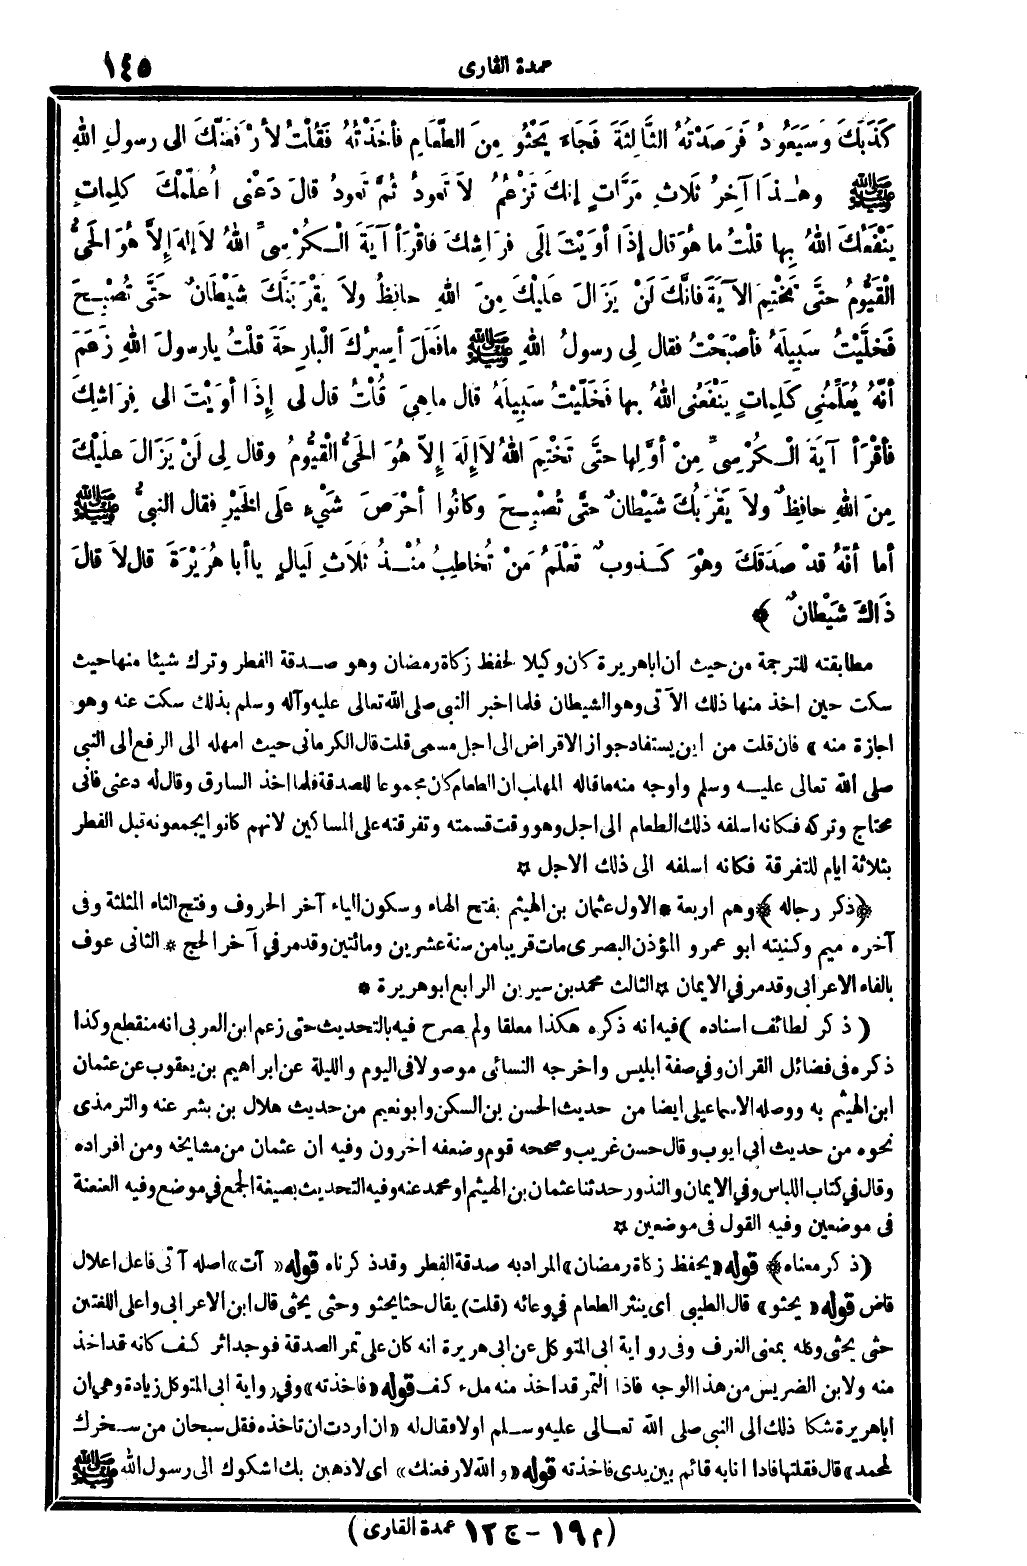 عمدة القارى ١٤٥
كَذَبَكَ وَسَيَعُودُ فَرَصَدْتُهُ الثَّالِثَةَ فَجَاءَ يَحْثُو مِنَ الطَّعَامِ فأخَذْتُهُ فَقُلْتُ لأرْفَعَنَّكَ الى رسولِ اللهِ
ﷺ وهٰذَا آخِرُ ثَلاثِ مَرَّاتٍ إنكَ تَزْعُمُ لاَ تعودُ ثُمَّ تَعودُ قالَ دَعْنِى أُعلِّمْكَ كلِماتٍ
يَنْفَعُكَ اللهُ بِها قلْتُ ما هُوَ قال إذَا أوَيْتَ إلَى فرَاشِكَ فاقْرَأ آيَةَ الْكُرْسِىِّ اللهُ لاَ إلهَ إلاَّ هُوَ الحَىُّ
القَيُّومُ حتَّى تَخْتِمَ الآيَةَ فإنَّكَ لَنْ يَزَالَ عليْكَ مِنَ اللهِ حافِظٌ ولاَ يَقْرَبَنَّكَ شَيْطَانٌ حَتَّى تُصْبِحَ
فَخلَّيْتُ سَبِيلَهُ فأصْبَحْتُ فقال لِى رسولُ اللهِ ﷺ مافَعَلَ أسِيرُكَ الْبارِحَةَ قلْتُ يارسولَ اللهِ زَعَمَ
أنَّهُ يُعَلِّمُنِى كَلِماتٍ يَنْفَعُنِى اللهُ بها فَخَلَّيْتُ سَبِيلَهُ قال ماهِىَ قُلْتُ قال لى إِذَا أوَيْتَ الى فِرَاشِكَ
فأقْرَأ آيَةَ الْكُرْسِىِّ مِنْ أوَّلِها حتَّى تَخْتِمَ اللهُ لاَ إلَهَ إلاَّ هُوَ الحَىُّ القَيُّومُ وقال لِى لَنْ يَزَالَ عليْكَ
مِنَ اللهِ حافِظٌ ولاَ يَقْرَبُكَ شَيْطانٌ حتَّى تُصْبِحَ وكانُوا أحْرَصَ شَىْءٍ علَى الخَيْرِ فقال النبىُّ ﷺ
أما أنَّهُ قدْ صَدَقَكَ وهْوَ كَذوبٌ تَعْلَمُ مَنْ تُخاطِبُ مُنْذُ ثَلاثِ لَيالٍ ياأبا هُرَيْرَةَ قال لاَ قالَ
ذَاكَ شَيْطانٌ ﴾
مطابقته للترجمة من حيث ان اباهريرة كان وكيلا لحفظ زكاة رمضان وهو صدقة الفطر وترك شيئا منها حيث
سكت حين اخذ منها ذلك الآتى وهو الشيطان فلما اخبر النبى صلى الله تعالى عليه وآله وسلم بذلك سكت عنه وهو
اجازة منه * فان قلت من اين يستفاد جواز الاقراض الى اجل مسمى قلت قال الكرمانى حيث امهله الى الرفع الى النبى
صلى الله تعالى عليه وسلم واوجه منه ماقاله المهلب ان الطعام كان مجموعا للصدقة فلما اخذ السارق وقال له دعنى فانى
محتاج وتركه فكانه اسلفه ذلك الطعام الى اجل وهو وقت قسمته وتفرقته على المساكين لانهم كانوا يجمعونه قبل الفطر
بثلاثة ايام للتفرقة فكانه اسلفه الى ذلك الاجل *
﴿ذكر رجاله﴾ وهم اربعة * الاول عثمان بن الهيثم بفتح الهاء وسكون الياء آخر الحروف وفتح الثاء المثلثة وفى
آخره ميم وكنيته ابو عمرو المؤذن البصرى مات قريبا من سنة عشرين ومائتين وقد مر في آخر الحج * الثانى عوف
بالفاء الاعرابى وقد مر في الايمان * الثالث محمد بن سيرين الرابع ابو هريرة *
﴿ذكر لطائف اسناده﴾ فيه انه ذكره هكذا معلقا ولم يصرح فيه بالتحديث حتى زعم ابن العربى انه منقطع وكذا
ذكره فى فضائل القران وفي صفة ابليس واخرجه النسائى موصولا فى اليوم والليلة عن ابراهيم بن يعقوب عن عثمان
ابن الهيثم به ووصله الاسماعيلى ايضا من حديث الحسن بن السكن وابو نعيم من حديث هلال بن بشر عنه والترمذى
نحوه من حديث ابى ايوب وقال حسن غريب وصححه قوم وضعفه اخرون وفيه ان عثمان من مشايخه ومن افراده
وقال في كتاب اللباس وفي الايمان والنذور حدثنا عثمان بن الهيثم او محمد عنه وفيه التحديث بصيغة الجمع في موضع وفيه العنعنة
فى موضعين وفيه القول فى موضعين *
﴿ذكر معناه﴾ قوله «يحفظ زكاة رمضان» المراد به صدقة الفطر وقد ذكرناه قوله «آت» اصله آتى فاعل اعلال
قاض قوله «يحثو» قال الطيبى اى ينثر الطعام في وعائه (قلت) يقال حثا يحثو وحثى يحثى قال ابن الاعرابى واعلى اللغتين
حثى يحثى وكله بمعنى الغرف وفى رواية ابى المتوكل عن ابى هريرة انه كان على تمر الصدقة فوجد اثر كف كانه قد اخذ
منه ولابن الضريس من هذا الوجه فاذا التمر قد اخذ منه ملء كف قوله «فاخذته» وفي رواية ابى المتوكل زيادة وهى ان
اباهريرة شكا ذلك الى النبى صلى الله تعالى عليه وسلم اولا فقال له «ان اردت ان تاخذه فقل سبحان من سخرك
لمحمد» قال فقلتها فاذا انا به قائم بين يدى فاخذته قوله «والله لارفعنك» اى لاذهبن بك اشكوك الى رسول الله ﷺ
(م ١٩ - ج ١٢ عمدة القارى)